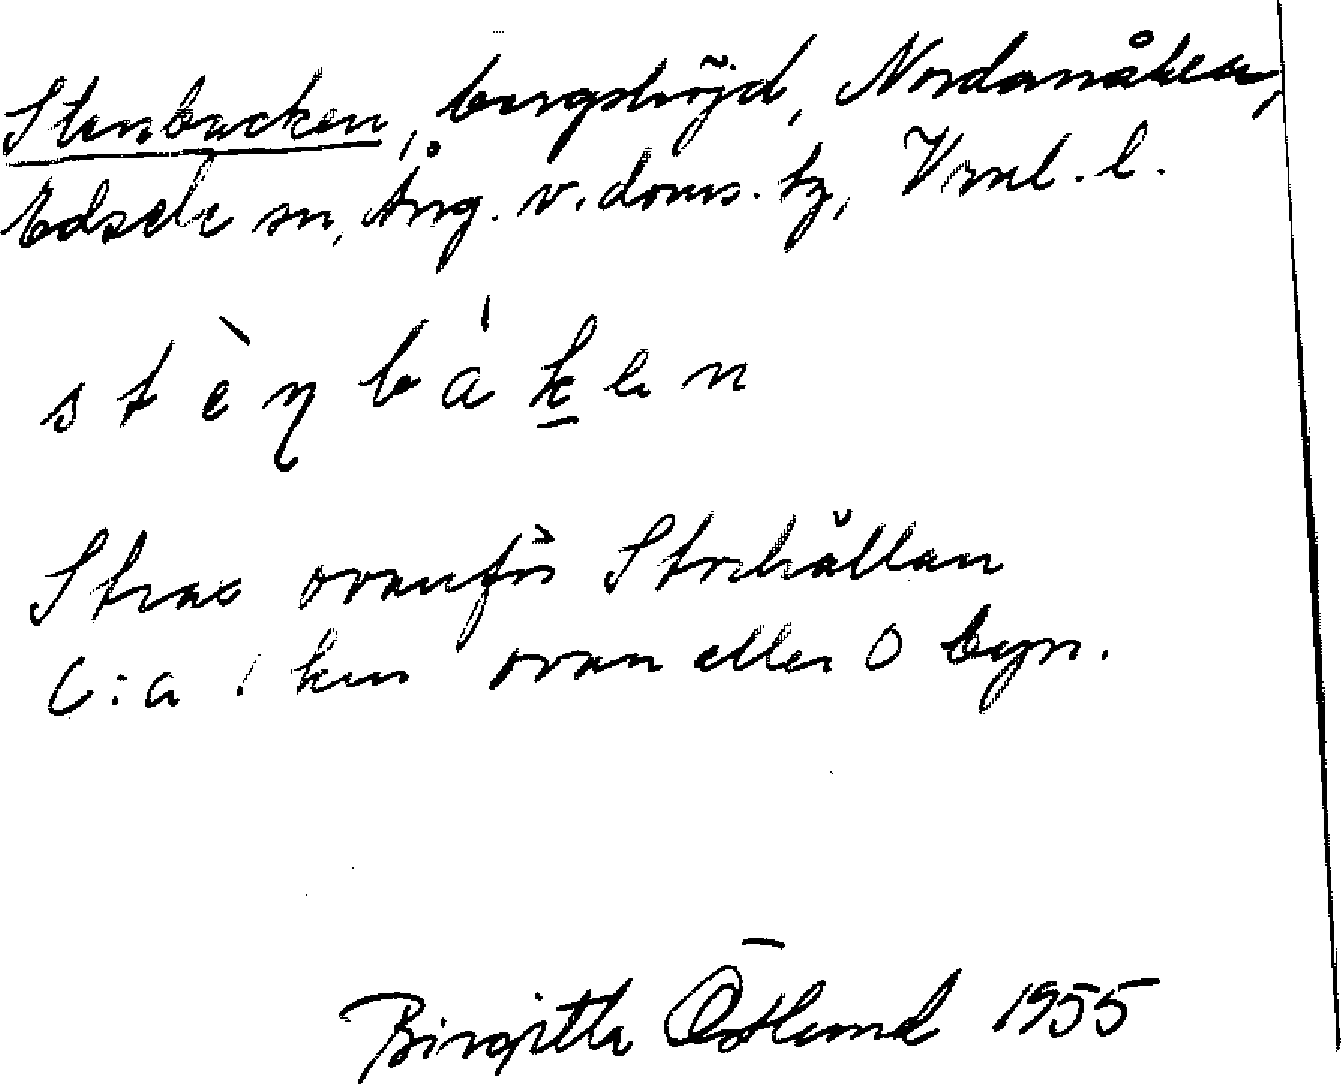 Stenbacken, bergshöjd, Nordanåker,
Edsele sn, Ång. v. doms. tg, Vrnl. l.
stèŋbáken
Strax ovanför Storhällan
C:a 1 km ovan eller O byn.
Birgitta Östlund 1955